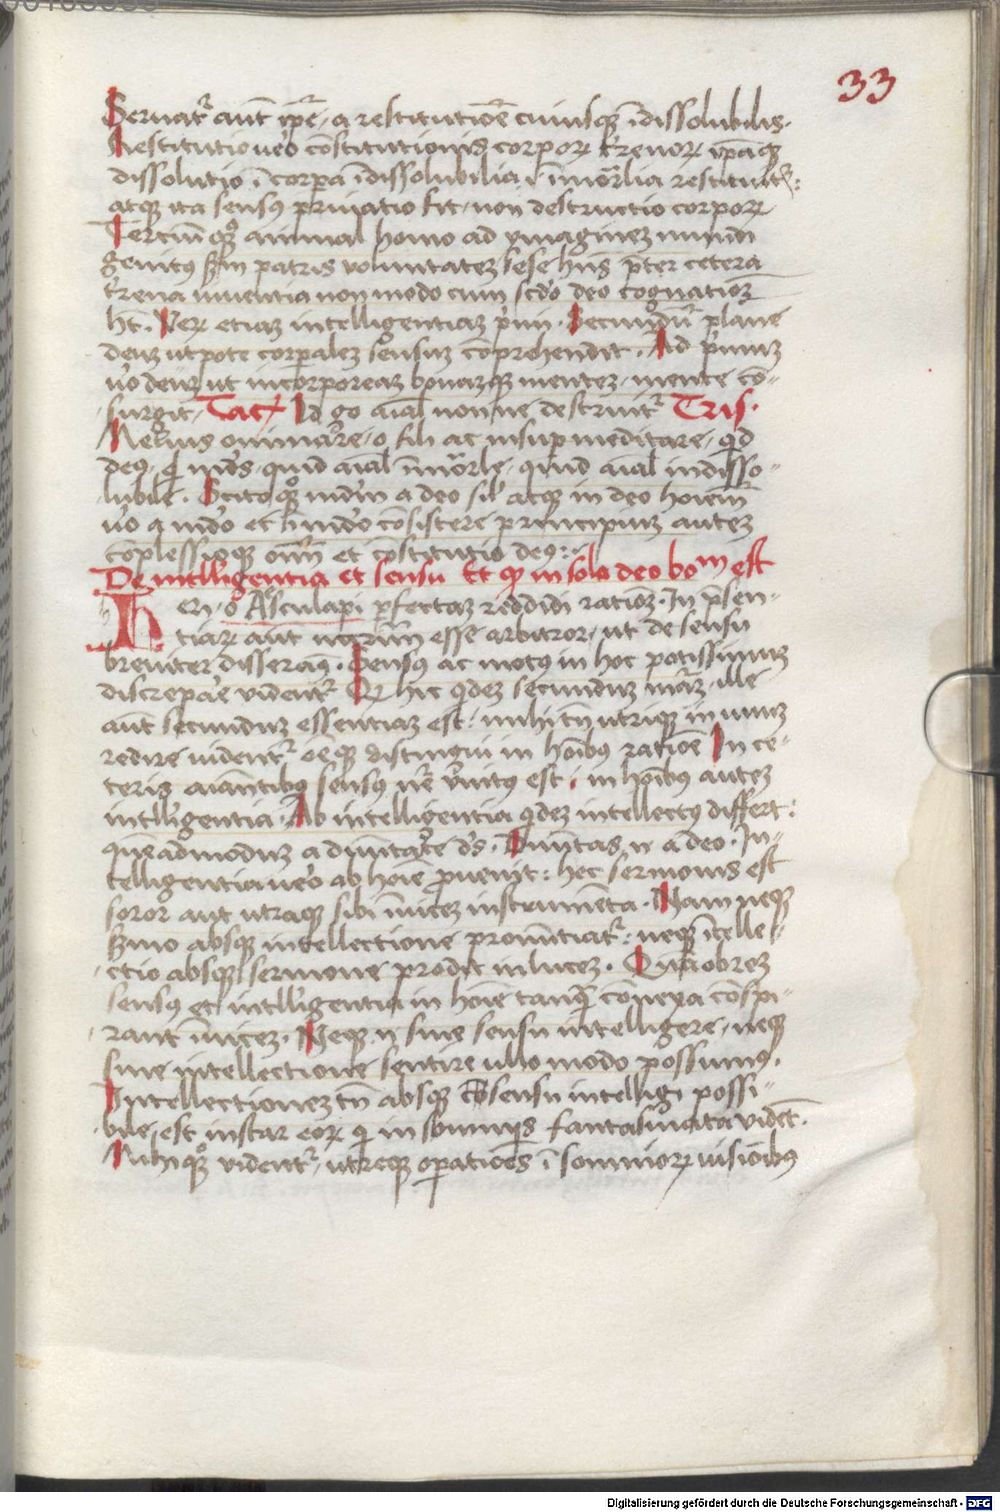 33
Seruat᷑ aut̄ ip̄e, a restitutiōe cuiusqꝫ īdissolubilis.
Restitutio ṽo cōstitutionis corporꝝ t̄renorꝝ ip̄aqꝫ
dissolutio, ī corpora īdissolubilia .i. īmōrlia restituit᷑:
atqꝫ ita sensꝰ priuatio fit, non destructio corporꝝ
Terciū qꝫ animal homo ad ymaginez mundi
genitꝰ scd̄m patris voluntatez, sese hn̄s p̄ter cetera
t̄rena viuentia non modo cum scd̄o deo cognatioꝫ
ht̄. Veꝝ etiaꝫ intelligentiaꝫ p̄mi. Secundū plane
deuꝫ utpote corporaleꝫ sensuꝫ cōprehendit. Ad p̄muꝫ
ṽo deuꝫ ut incorporeaꝫ bonaꝫqꝫ menteꝫ, mente cō-
surgit. Tac. Id g̊o aīal non ne destruit᷑ Tris.
Melius ominare, o fili ac insup meditare, qͥd
deꝰ, qͥ mūdꝰ, quid aīal īmōrle, quid aīal indisso-
lubile. Scito qꝫ mūdm̄ a deo sil̓ atqꝫ in deo hoīem
ṽo a mūdo et ī mūdo cōsistere principiuꝫ auteꝫ
cōplessioqꝫ om̄m et cōstitutio deꝰ:
De intelligentia et sensu Et qꝫ in solo deo bom̄ est
Heri, o Asculapi perfectaꝫ reddidi ratioꝫ. In p̄sen-
tiaꝝ aut̄ necariū esse arbitror, ut de sensu
breuiter disseraꝫ. Sensꝰ ac motꝰ in hoc potissimuꝫ
discrepare vident᷑ Qꝫ hic qͥdeꝫ secunduꝫ māꝫ, ille
aut̄ secunduꝫ essentiaꝫ est: mihi tn̄ utriqꝫ in unuꝫ
redire vident᷑ neqꝫ distingui in hoībus ratiōe In ce-
teris aiāntibꝰ sensꝰ nē vnitꝰ est, in hoībus auteꝫ
intelligentia. Ab intelligentia qͥdeꝫ intellectus differt:
queadmoduꝫ a diuītate dꝰ. Diuītas n̄ a deo. In-
telligentia ṽo ab hoīe ꝓuenit: hec sermonis est
soror aut utraqꝫ sibi īuiceꝫ instrumēta. Nam neqꝫ
sermo absqꝫ intellectione pronūtiat᷑: neqꝫ īntelle-
ctio absqꝫ sermone prodit in luceꝫ. Quaobreꝫ
sensꝰ et intelligentia in hoīe tanqꝫ cōnexa cōspi-
rant īuiceꝫ. Neqꝫ n̄ sine sensu intelligere, neqꝫ
sine intellectione sentire ullo modo possumꝰ.
Intellectioneꝫ tn̄ absqꝫ sensu intelligi possi-
bile est, instar eoꝝ qͥ in somnijs fantasmata vidēt.
Mihi qꝫ vident᷑, utreqꝫ operatiōes ī somnioꝝ visiōibꝰ
Digitalisierung gefördert durch die Deutsche Forschungsgemeinschaft - DFG